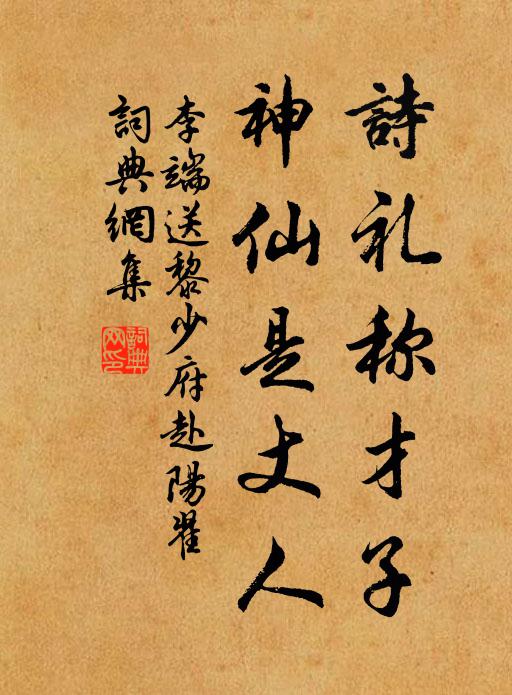 詩礼称才子
神仙是丈人
李端送黎少府赴陽翟
詞典網集
詞典網印